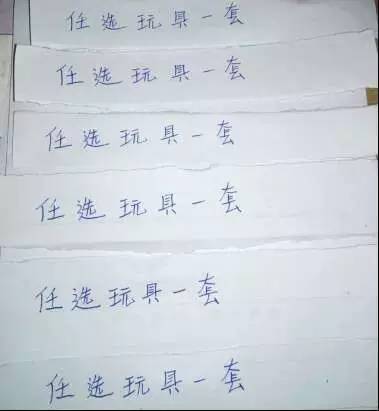 任选玩具一套
任选玩具一套
任选玩具一套
任选玩具一套
任选玩具一套
任选玩具一套